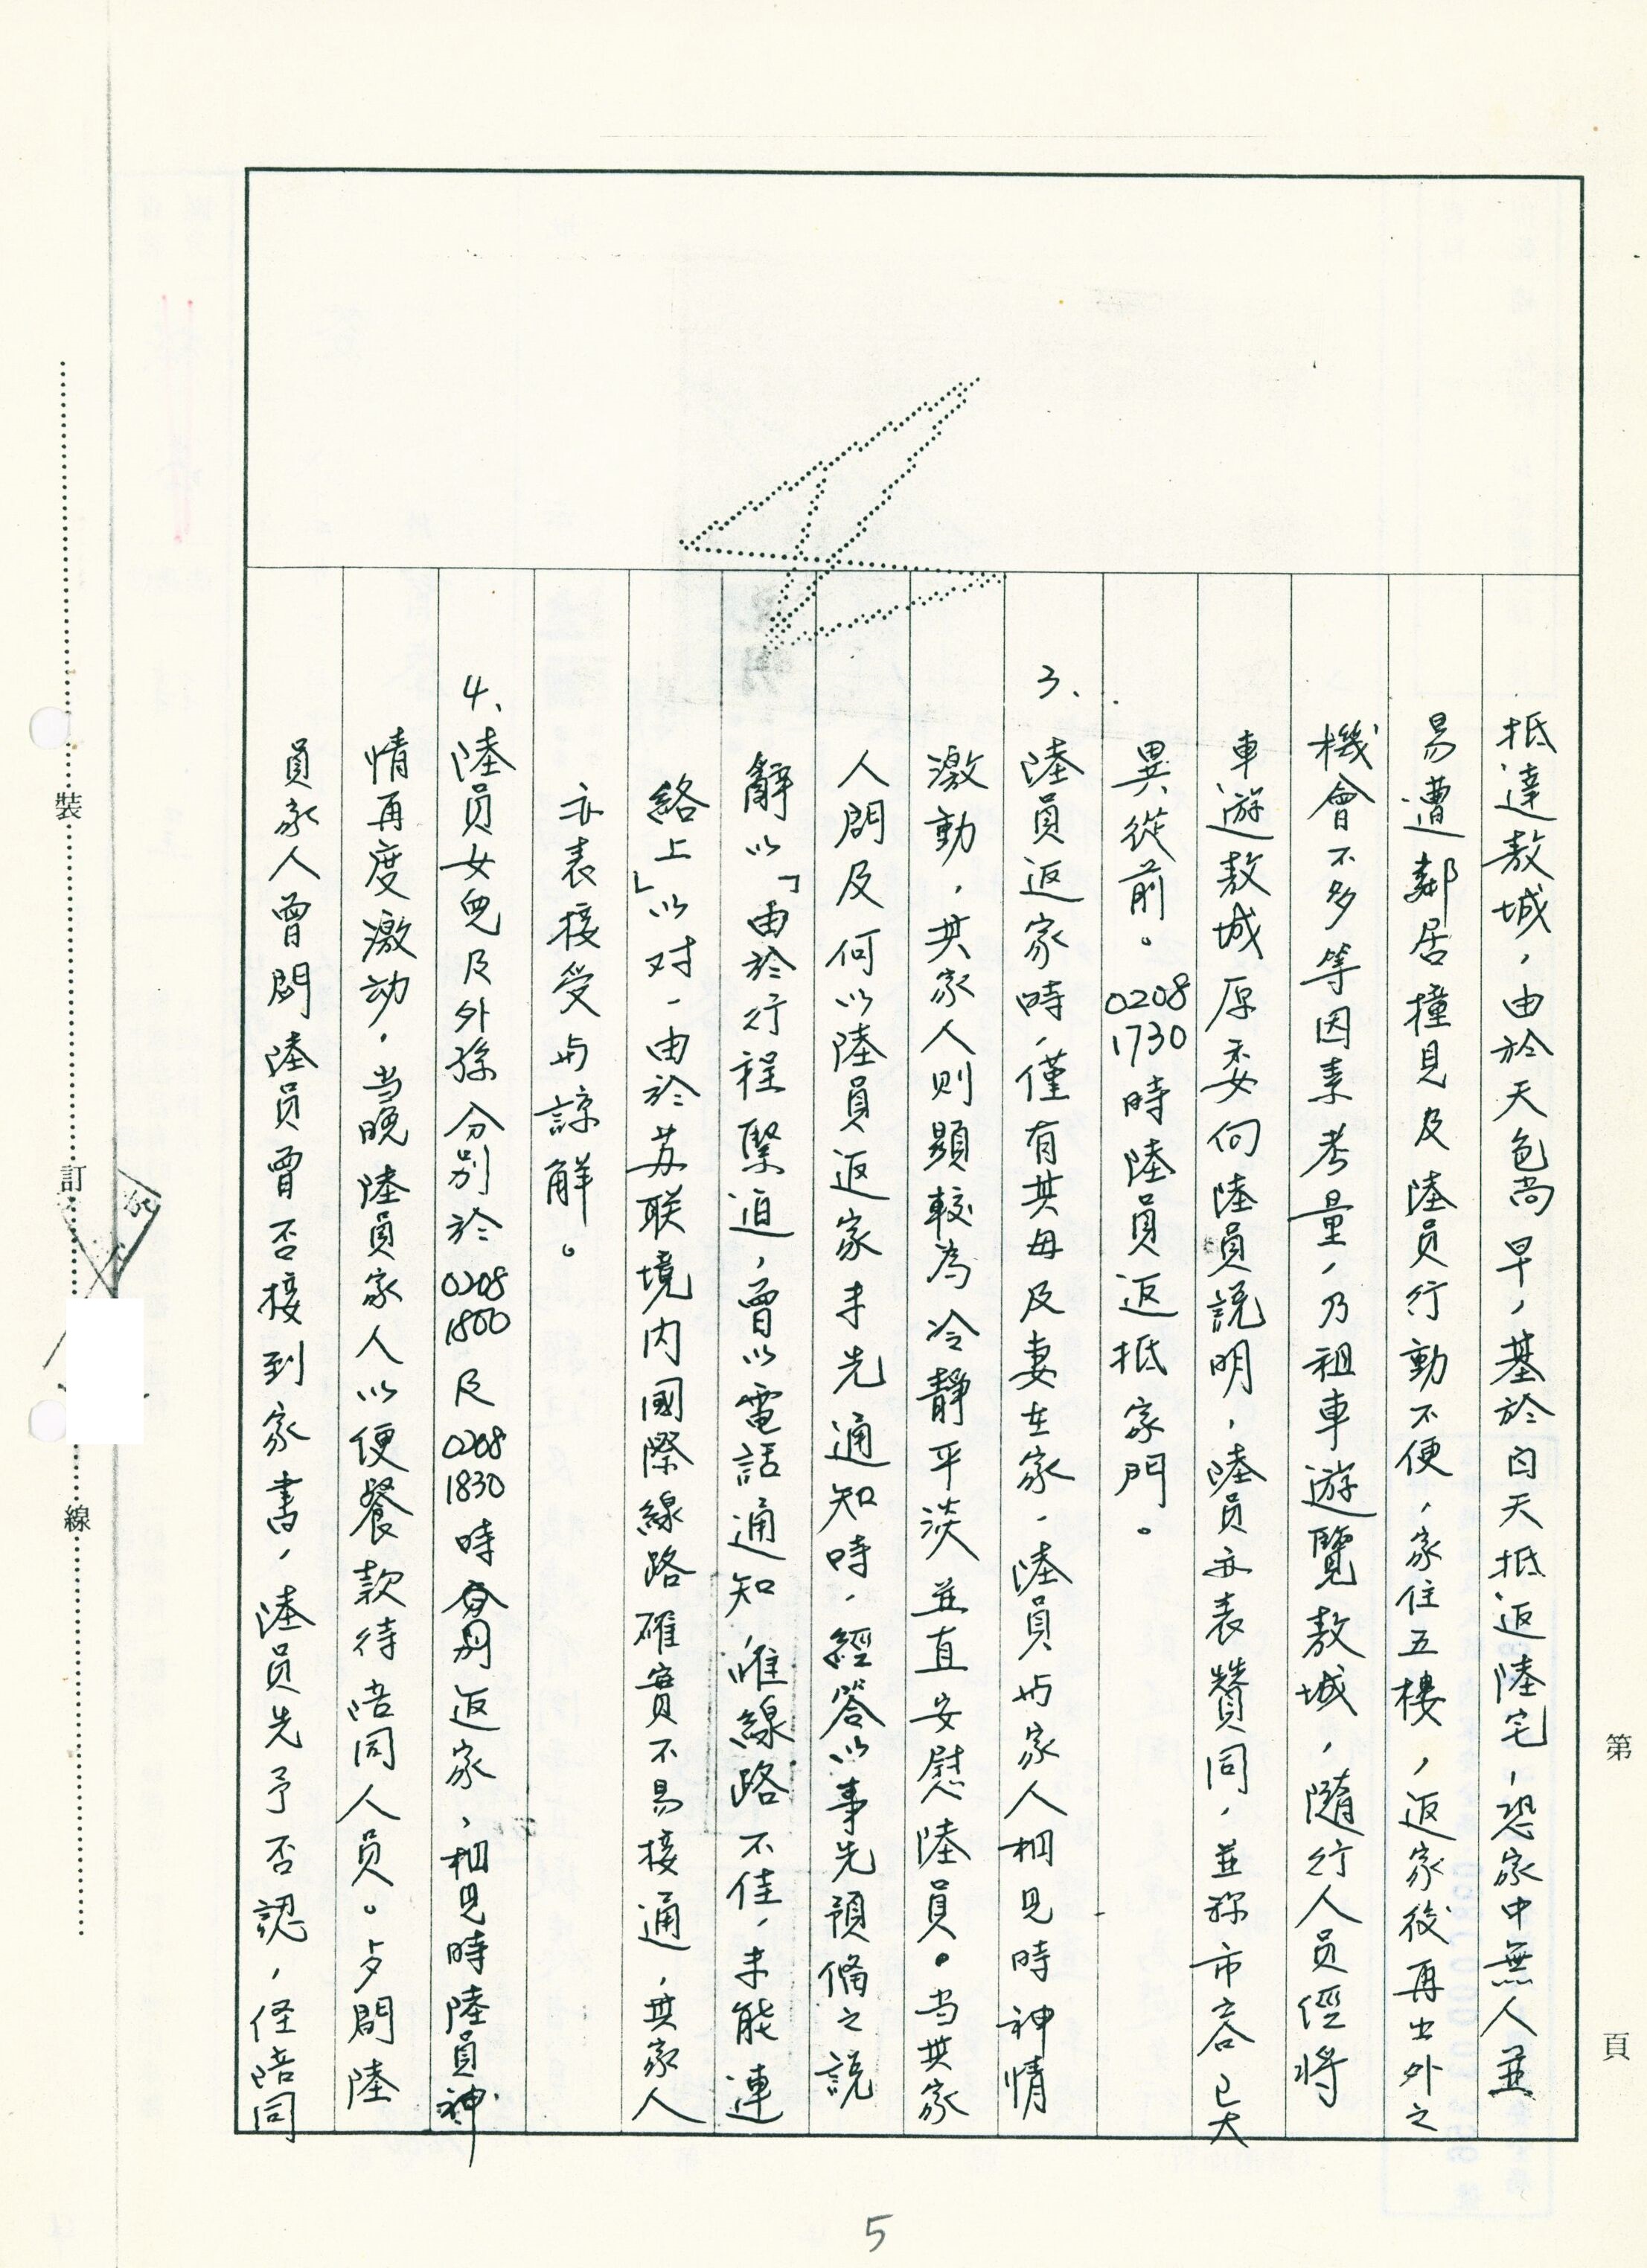 抵達敖城，由於天色尚早，基於白天抵返陸宅，恐家中無人並
易遭鄰居撞見及陸員行動不便，家住五樓，返家後再出外之
機會不多等因素考量，乃租車遊覽敖城，隨行人員經將
車遊敖城原委向陸員說明，陸員亦表贊同，並称市容已大
異從前。0208 1730時陸員返抵家門。
3、陸員返家時，僅有其母及妻在家，陸員与家人相見時神情
激動，其家人則顯較為冷靜平淡並直安慰陸員。当其家
人問及何以陸員返家未先通知時，經答以事先預備之說
辭以「由於行程緊迫，曾以電話通知，惟線路不佳，未能連
絡上」以对，由於苏联境内國際線路確實不易接通，其家人
亦表接受与諒解。
4、陸員女兒及外孫分別於0208 1800及0208 1830時分別返家，相見時陸員神
情再度激动，当晚陸員家人以便餐款待陪同人員。夕間陸
員家人曾問陸員曾否接到家書，陸員先予否認，經陪同
裝
訂
線
第
頁
5